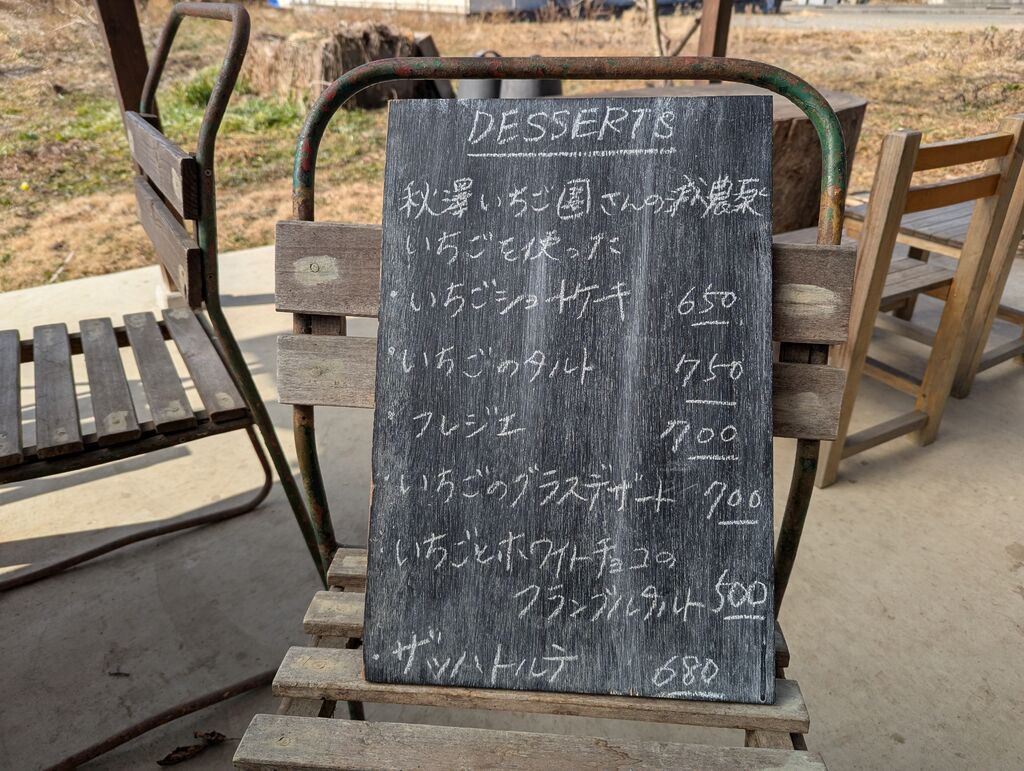 DESSERTS
秋澤いちご園さんの減農薬
いちごを使った
・いちごショートケーキ 650
・いちごのタルト 750
・フレジエ 700
・いちごのグラスデザート 700
・いちごとホワイトチョコの
クランブルタルト 500
・ザッハトルテ 680